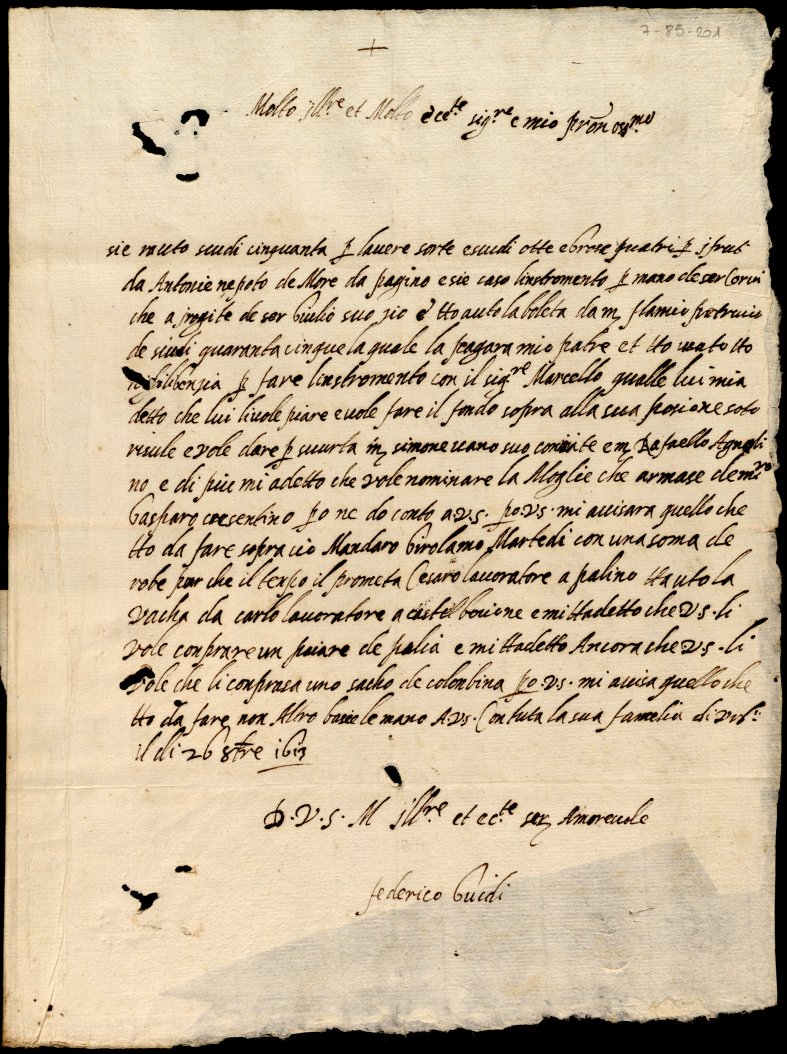 7-85-201
+
Molto jllre et Molto ecc.te sig.re e mio pron oss.mo
sie rauto scudi cinquanta p lauere sorte e scudi otte e grose quatri p j frut
da Antonie nepoto de More da pagino e sie caso linstromento p mano de ser
che a de ser Giulio suo zio e tto auto la boleta da m flamio petrucio
de scudi quaranta cinque la quale la pagara mio patre et tto usato tto
diligenzia p fare linstromento con il sig.re Marcello qualle lui mia
detto che lui li uole piare e uole fare il fondo sopra alla sua posione soto
e uole dare p sicurta m simone uano suo e m Rafaello Agnoli
no e di piu mi adetto che vole nominare la Moglie che armase de m.ro
Gasparo cosentino po ne do conto a V.S. po V.S. mi auisara quello che
tto da fare sopra cio Mandaro Girolamo Martedi con una soma de
robe pur che il tenpo il prometa Cesaro lauoratore a palino tt auto la
vacha da carlo lauoratore a castel bouione e mi ttadetto che V.S. li
vole conprare un paiare de palia e mi ttadetto Ancora che V.S. li
vole che li conprasa uno sacho de colonbina po V.S. mi auisa quello che
tto da fare non Altro bacie le mano A V.S. Con tuta la sua famelia di
il di 26 8bre 1613
D. V. S. M jll.re et ecc.te ser Amoreuole
federico Guidi